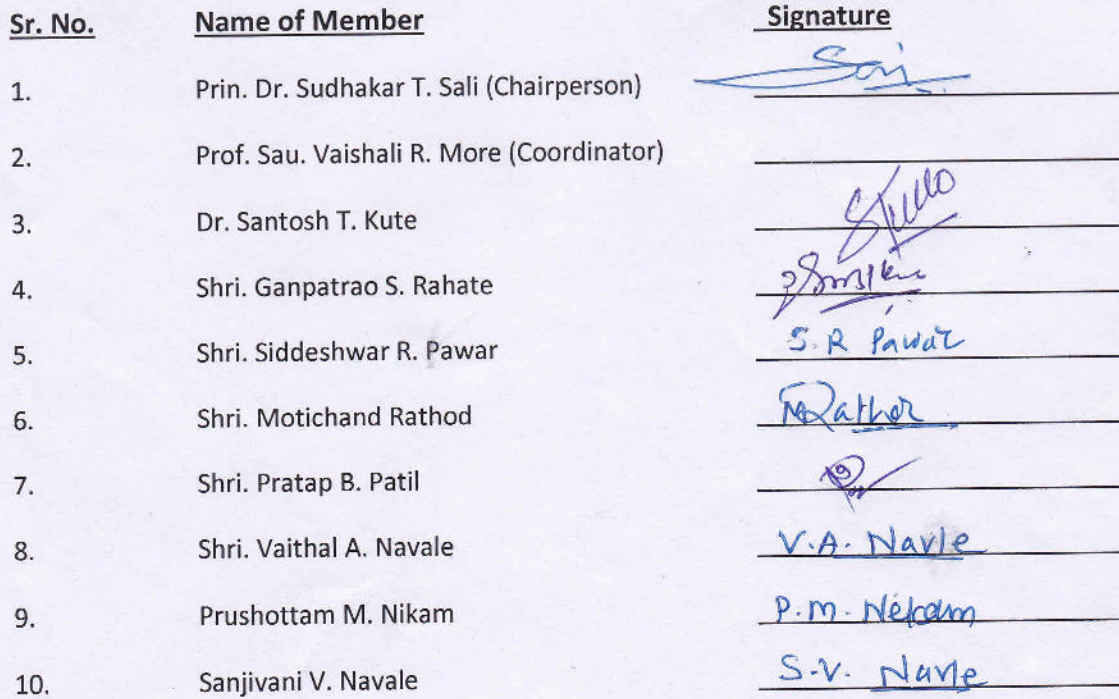 Sr. No. Name of Member Signature
1. Prin. Dr. Sudhakar T. Sali (Chairperson)
2. Prof. Sau. Vaishali R. More (Coordinator)
3. Dr. Santosh T. Kute
4. Shri. Ganpatrao S. Rahate
5. Shri. Siddeshwar R. Pawar S. R Pawar
6. Shri. Motichand Rathod
7. Shri. Pratap B. Patil
8. Shri. Vaithal A. Navale V.A. Navle
9. Prushottam M. Nikam P.M. Nekam
10. Sanjivani V. Navale S.V. Navle